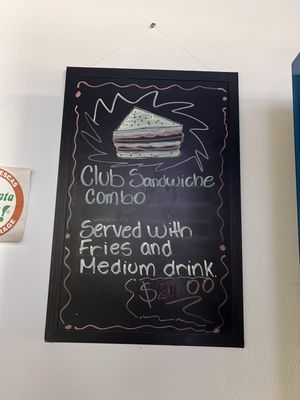 Club Sandwiche
Combo
Served with
Fries and
Medium drink.
00